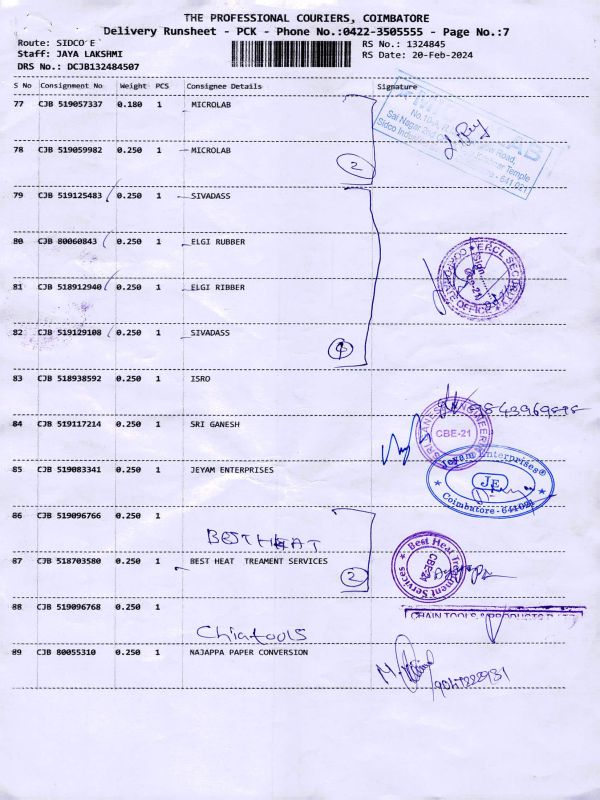 THE PROFESSIONAL COURIERS, COIMBATORE
Delivery Runsheet - PCK - Phone No.:0422-3505555 - Page No.:7
Route: SIDCO E
RS No.: 1324845
Staff: JAYA LAKSHMI
RS Date: 20-Feb-2024
DRS No.: DCJB132484507
S No Consignment No Weight PCS Consignee Details Signature
77 CJB 519057337 0.180 1 MICROLAB
78 CJB 519059982 0.250 1 MICROLAB
2
79 CJB 519125483 0.250 1 SIVADASS
80 CJB 80060843 0.250 1 ELGI RUBBER
81 CJB 518912940 0.250 1 ELGI RIBBER
82 CJB 519129108 0.250 1 SIVADASS
83 CJB 518938592 0.250 1 ISRO
84 CJB 519117214 0.250 1 SRI GANESH
CBE-21
85 CJB 519083341 0.250 1 JEYAM ENTERPRISES
Jeyam Enterprises
JE
Coimbatore - 641021
86 CJB 519096766 0.250 1
BEST HEAT
87 CJB 518703580 0.250 1 BEST HEAT TREAMENT SERVICES
2
Best Heat Treatment Services
CBE-21
88 CJB 519096768 0.250 1
Chiatools
CHAIN TOOLS & PRODUCTS
89 CJB 80055310 0.250 1 NAJAPPA PAPER CONVERSION